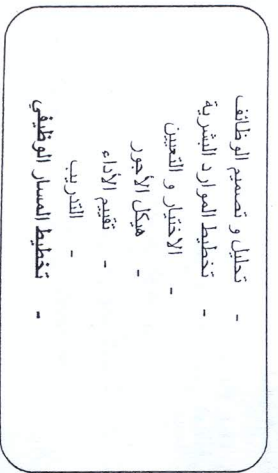 - تحليل و تصميم الوظائف
- تخطيط الموارد البشرية
- الاختيار و التعيين
- هيكل الأجور
- تقييم الأداء
- التدريب
- تخطيط المسار الوظيفي